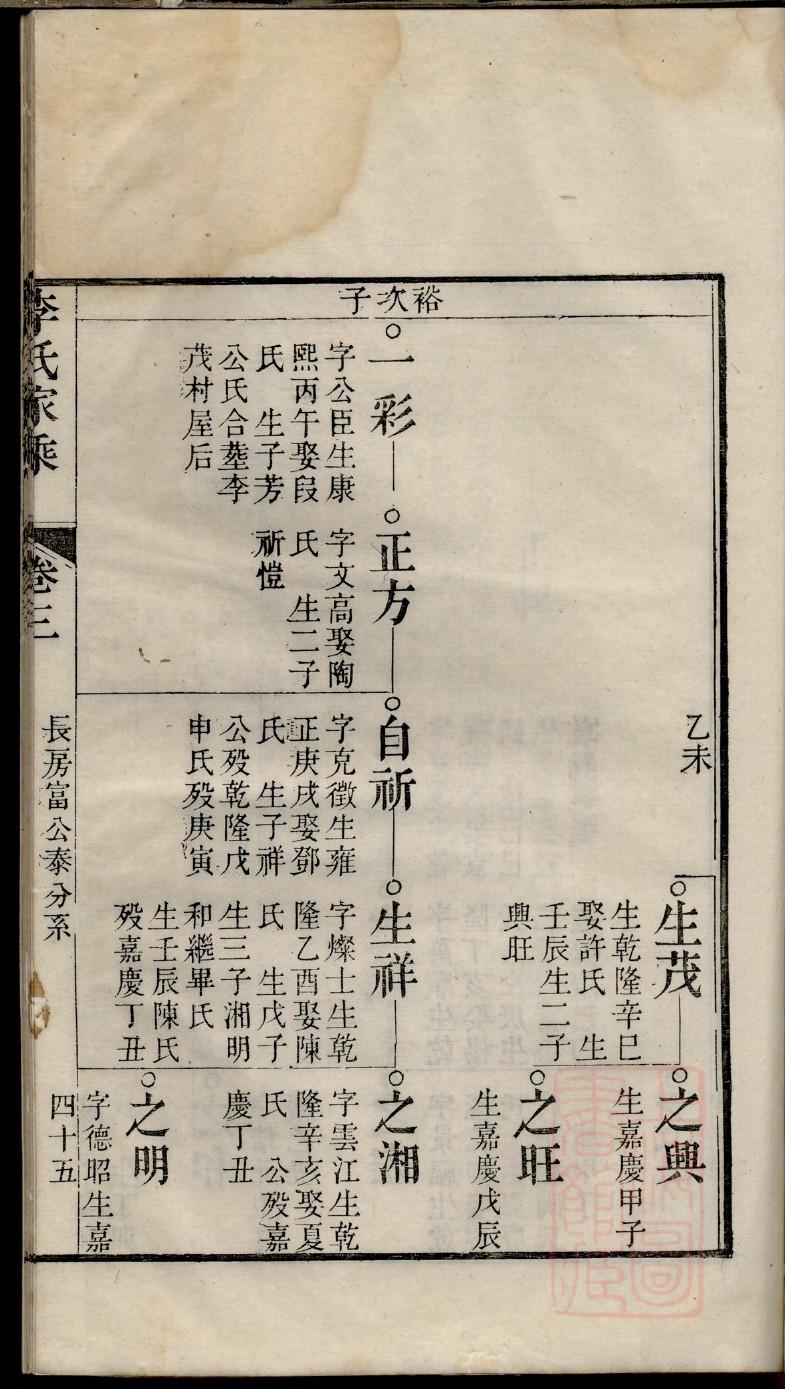 裕次子
乙未
生茂
生乾隆辛巳
娶許氏　生
壬辰生二子
興旺
之興
生嘉慶甲子
之旺
生嘉慶戊辰
一彩
字公臣生康
熙丙午娶段
氏　生子芳
公氏合塟李
茂村屋后
正方
字文高娶陶
氏　生二子
祈愷
自祈
字克徵生雍
正庚戌娶鄧
氏　生子祥
公殁乾隆戊
申氏殁庚寅
生祥
字燦士生乾
隆乙酉娶陳
氏　生戊子
生三子湘明
和繼畢氏
生壬辰陳氏
殁嘉慶丁丑
之湘
字雲江生乾
隆辛亥娶夏
氏　公殁嘉
慶丁丑
之明
字德昭生嘉
李氏家乘
卷三
長房富公泰分系
四十五